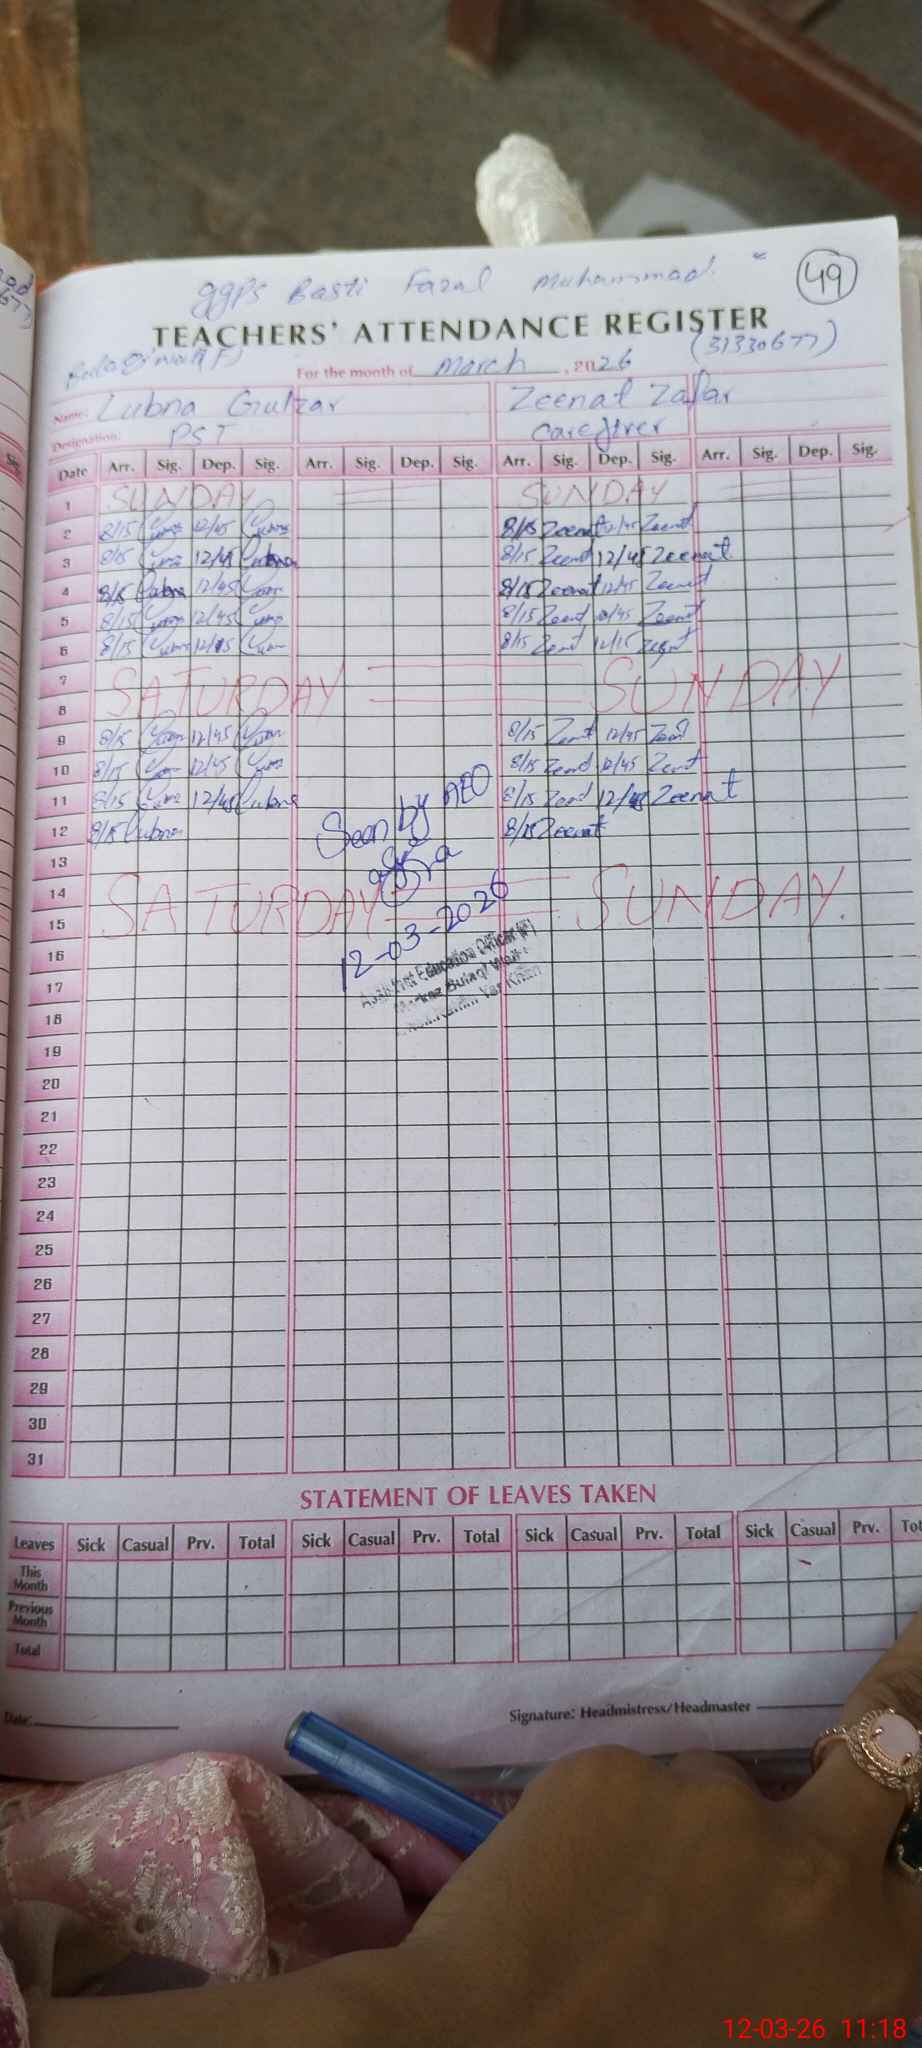 GGPS Basti Fazal Muhammad
49
TEACHERS' ATTENDANCE REGISTER
(31330677)
For the month of March, 2026
Name: Lubna Gulzar Zeenat Zafar
Designation: PST Caregiver
Date Arr. Sig. Dep. Sig. Arr. Sig. Dep. Sig. Arr. Sig. Dep. Sig. Arr. Sig. Dep. Sig.
1 SUNDAY SUNDAY
2 8/15 12/45 8/15 Zeenat 12/45 Zeenat
3 8/15 12/45 Lubna 8/15 Zeenat 12/45 Zeenat
4 8/15 Lubna 12/45 8/15 Zeenat 12/45 Zeenat
5 8/15 12/45 8/15 Zeenat 12/45 Zeenat
6 8/15 8/15 Zeenat Zeenat
7 SATURDAY SUNDAY
8
9 8/15 12/45 8/15 Zeenat 12/45 Zeenat
10 8/15 12/45 8/15 Zeenat 12/45 Zeenat
11 8/15 12/45 Lubna 8/15 Zeenat 12/45 Zeenat
12 8/15 Lubna 8/15 Zeenat
Seen by AEO
13
14 SATURDAY SUNDAY
15
12-03-2026
Assistant Education Officer
16
17
18
19
20
21
22
23
24
25
26
27
28
29
30
31
STATEMENT OF LEAVES TAKEN
Leaves Sick Casual Prv. Total Sick Casual Prv. Total Sick Casual Prv. Total Sick Casual Prv. Tot
This Month
Previous Month
Total
Date: Signature: Headmistress/Headmaster
12-03-26 11:18